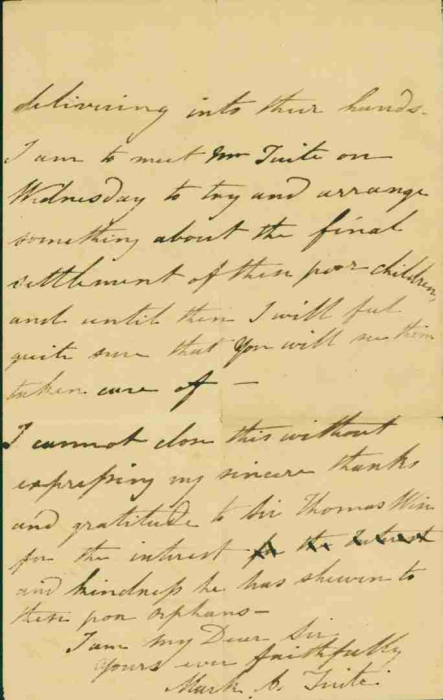 delivering into their hands.
I am to meet Mr Tuite on
Wednesday to try and arrange
something about the final
settlement of these poor children,
and until then I will feel
quite sure that you will see them
taken care of —
I cannot close this without
expressing my sincere thanks
and gratitude to Sir Thomas Win
for the interest for the interest
and kindness he has shewn to
these poor orphans —
I am my Dear Sir
yours ever faithfully
Mark A. Tuite